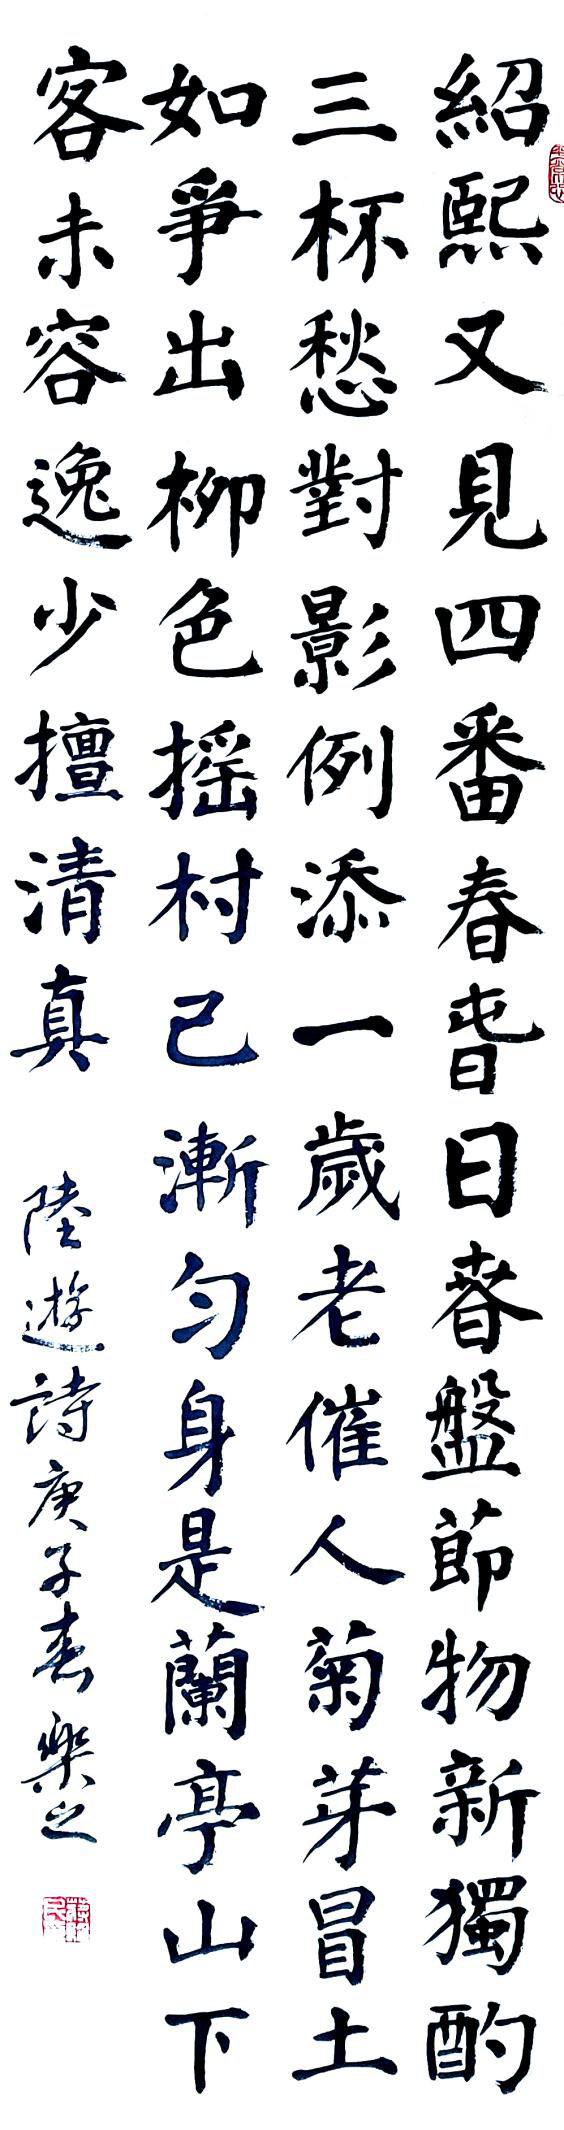 紹熙又見四番春旾日春盤節物新獨酌
三杯愁對影例添一歲老催人菊芽冒土
如爭出柳色摇村已漸勻身是蘭亭山下
客未容逸少擅清真 陸遊詩庚子春樂之